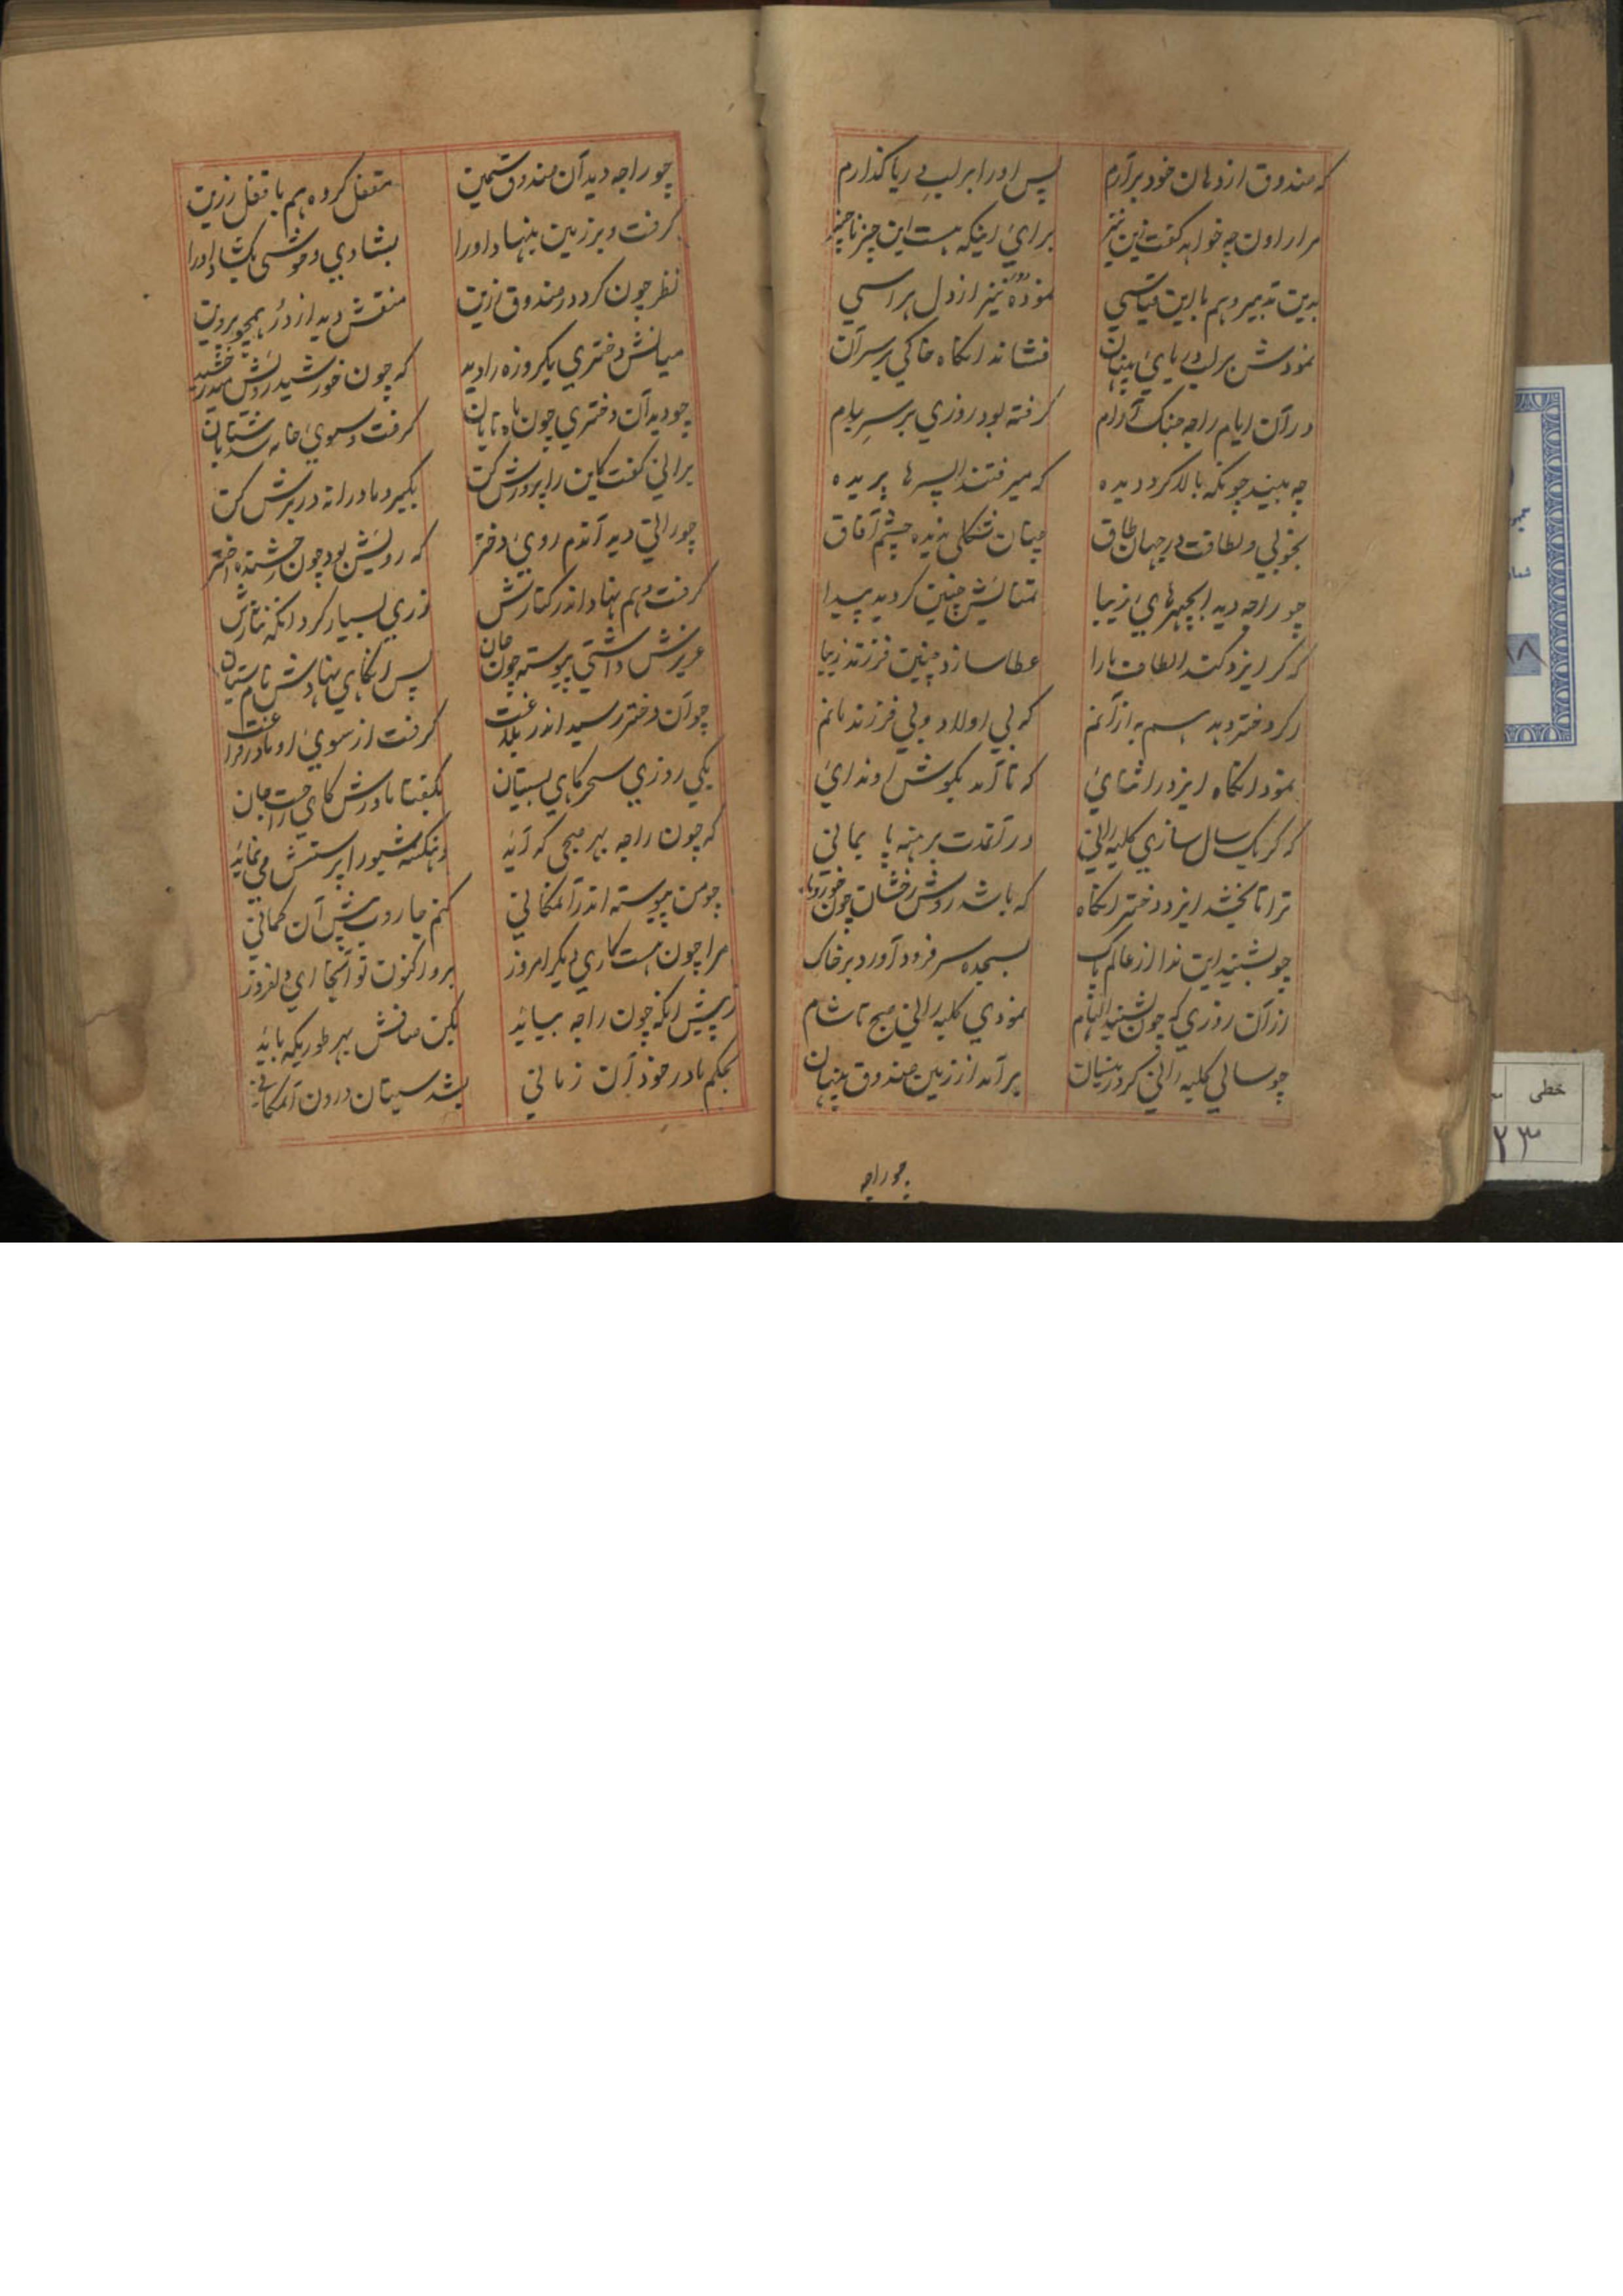 که صندوق از دهان خود برآرم پس او را بر لب دریا گذارم
مرا راون چه خواهد گفت زین نیز برای اینکه هست این چیز ناچیز
بدین تدبیر و هم با این قیاسی نموده نیز از دل هراسی
نمودش بر لب دریای پنهان فشاند انگاه خاکی بر سر آن
در آن ایام راجه جنک آرام گرفته بود روزی بر سر بام
چه بیند چونکه بالا کرد دیده که میرفتند ها پریده
بخوبی و لطافت در جهان طاق چنان شکلی ندیده چشم آفاق
چو راجه دید زیبا تمنایش چنین کردید پیدا
که کر ایزد کند الطاف با را عطا سازد چنین فرزند زیبا
وکر دختر دهد هم به از آنم که بی اولاد و بی فرزند مانم
نمود انگاه ایزد را ثنای که تا آمد بکوش او ندای
که کر یک سال سازی کلبه رانی در آنمدت برهنه پا بمانی
ترا تا بخشد ایزد دختر انگاه که باشد رویش رخشان چون
چو بشنید این ندا از عالم پاک بسجده سر فرود آورد بر خاک
از آن روزی که چون بشنید الهام نمودی کلبه رانی صبح تا شام
چو سالی کلبه رانی کرد زینسان برآمد از زمین صندوق پنهان
چو راجه
چو راجه دید آن صندوق سیمین مقفل کرده هم با قفل زرین
گرفت و بر زمین بنهاد او را بشادی و خوشی بکشاد او را
نظر چون کرد در صندوق زرین منقش دید از در همچو پروین
میانش دختری یکروزه را دید که چون خورشید رویش میدرخشید
چو دید آن دختری چون ماه تابان گرفت و سوی خانه شد شتابان
برانی گفت کاین را پرورش کن بگیر و مادرانه در برش کن
چو رانی دید آندم روی دختر که رویش بود چون رخشنده اختر
گرفت و هم نهاد اندر کنارش زری بسیار کرد انگه نثارش
عزیزش داشتی پیوسته چون جان پس انگاهی نهادش نام سیتان
چو آن دختر رسید اندر گرفت از سوی او مادر
یکی روزی سحرگاهی بسیتان بگفتا مادرش کای راحت جان
که چون راجه بهر صبحی که آید دهنکه شیو را پرستش می نماید
چو من پیوسته اندر آنمکانی کنم جاروب پیش آن کمانی
مرا چون هست کاری دیگر امروز برو اکنون تو آنجا ای دلفروز
ز پیش انکه چون راجه بیاید بکن صافش بهر طوریکه باید
بحکم مادر خود آن زمانی بشد سیتان درون آنمکانی
خطی
۲۳